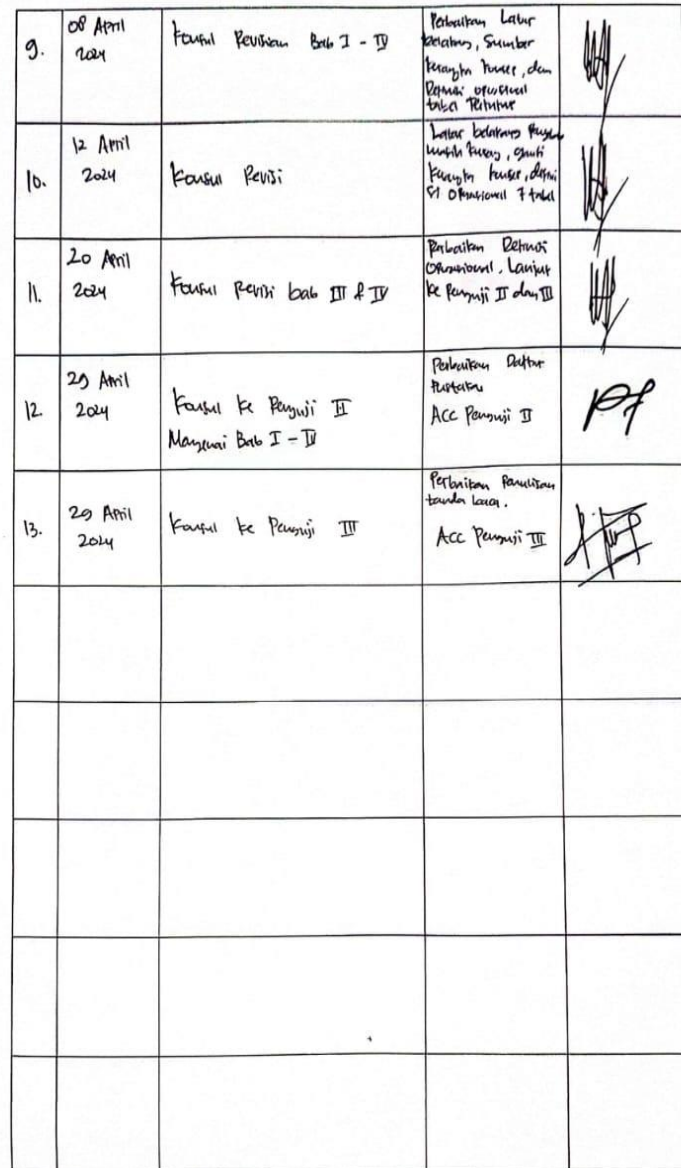 9.
08 April
2024
Konsul Revisian Bab I - IV
Perbaikan Latar
belakang, Sumber
kerangka konsep, dan
Definisi operasional
tabel
10.
12 April
2024
Konsul Revisi
Latar belakang
masih kurang, ganti
kerangka konsep, defini
si operasional 7 tabel
11.
20 April
2024
Konsul Revisi bab III & IV
Perbaikan Definisi
Operasional, Lanjut
ke Penguji II dan III
12.
29 April
2024
Konsul ke Penguji II
Mengenai Bab I - IV
Perbaikan Daftar
Pustaka
ACC Penguji II
13.
29 April
2024
Konsul ke Penguji III
Perbaikan Penulisan
tanda baca.
ACC Penguji III